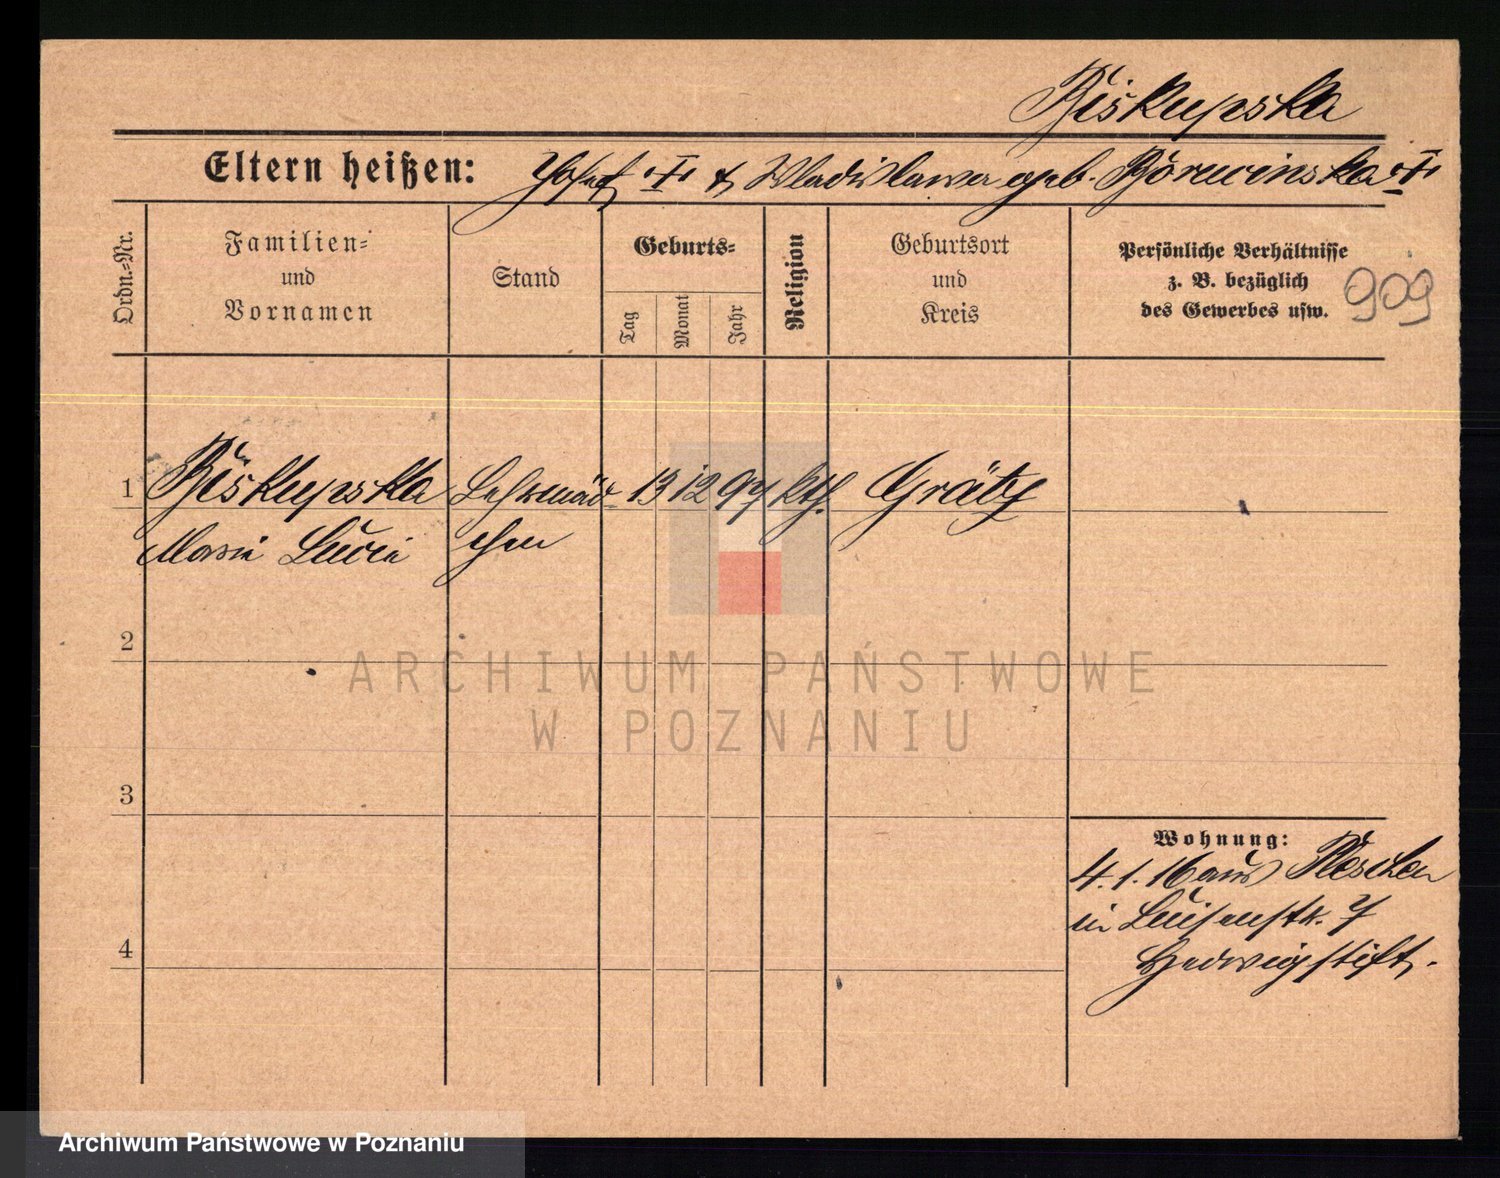 Biskupska
Eltern heißen: Josef † & Wladislawa geb. Borucinska †
Ordn.=Nr.
Familien=
und
Vornamen
Stand
Geburts=
Tag
Monat
Jahr
Religion
Geburtsort
und
Kreis
Persönliche Verhältnisse
z. B. bezüglich
des Gewerbes usw.
909
1 Biskupska Lehrmäd- 13 12 97 kth. Grätz
Marie Lucie chen
2
ARCHIWUM PAŃSTWOWE
W POZNANIU
3
Wohnung:
4.1.16 aus Pleschen
in Luisenstr. 7
Hedwigstift.
4
Archiwum Państwowe w Poznaniu